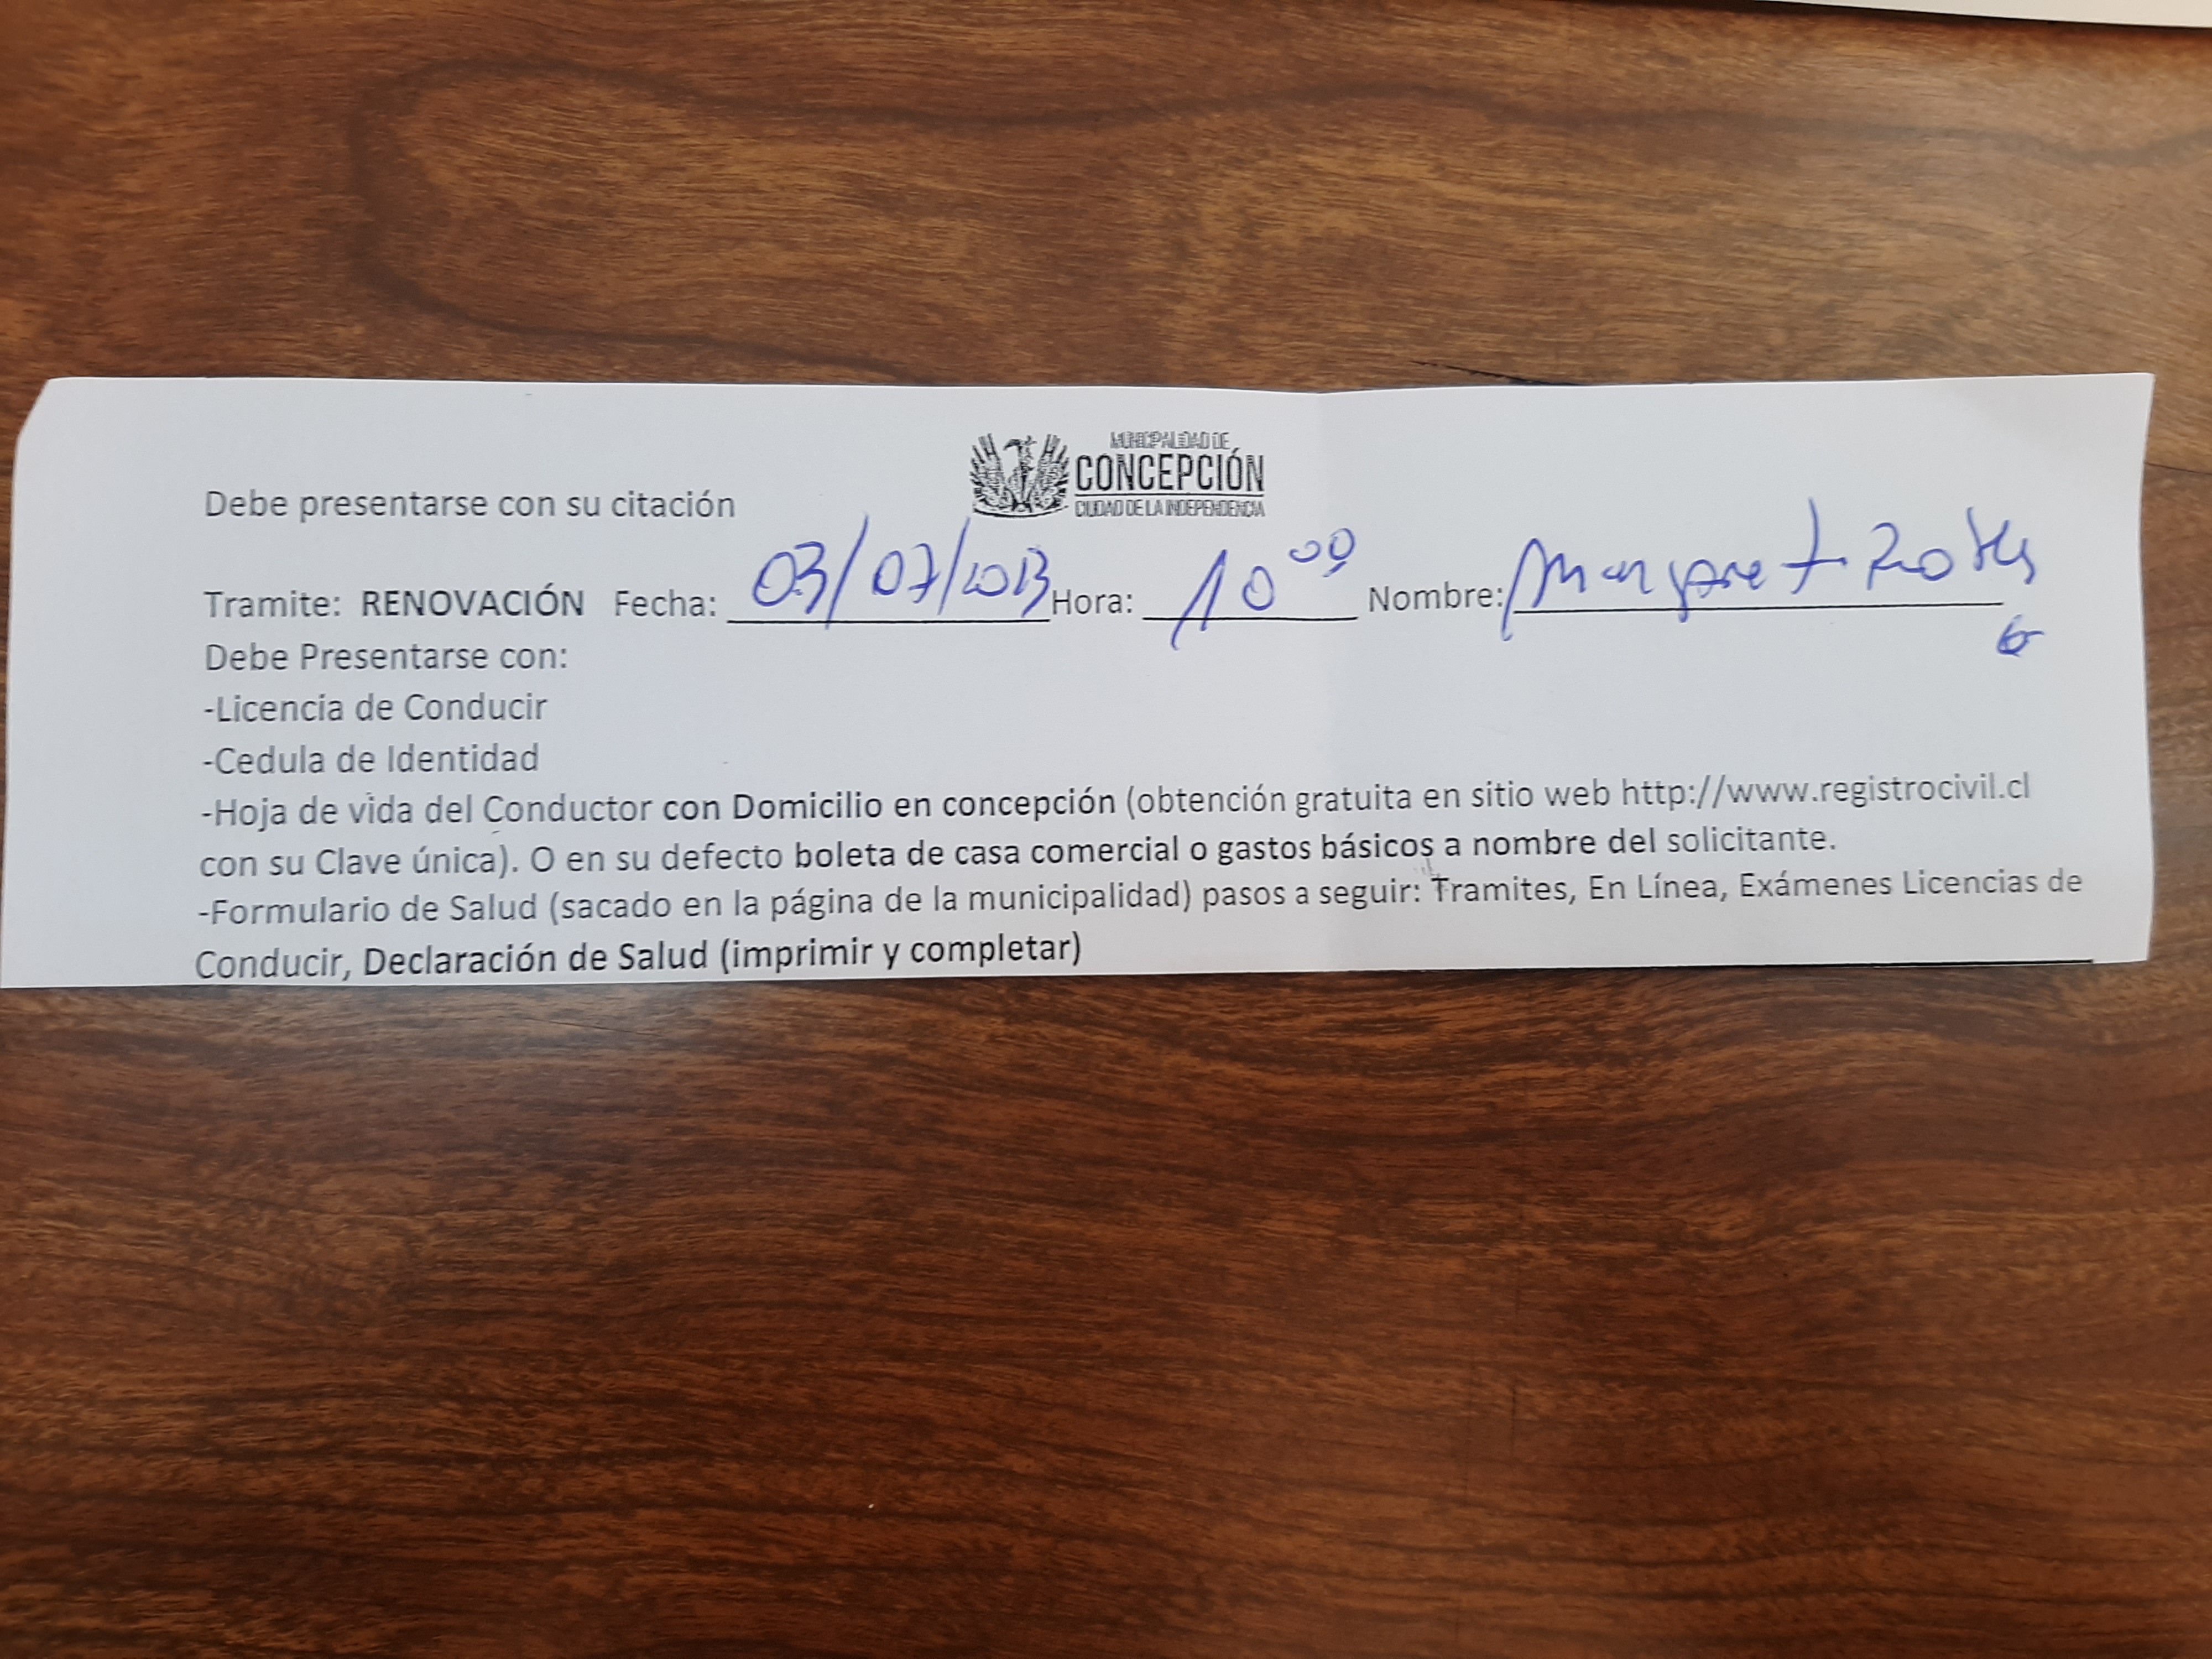 MUNICIPALIDAD DE
CONCEPCIÓN
CIUDAD DE LA INDEPENDENCIA
Debe presentarse con su citación
Tramite: RENOVACIÓN Fecha: 03/07/2023 Hora: 10 00 Nombre: Margaret
Debe Presentarse con:
-Licencia de Conducir
-Cedula de Identidad
-Hoja de vida del Conductor con Domicilio en concepción (obtención gratuita en sitio web http://www.registrocivil.cl
con su Clave única). O en su defecto boleta de casa comercial o gastos básicos a nombre del solicitante.
-Formulario de Salud (sacado en la página de la municipalidad) pasos a seguir: Tramites, En Línea, Exámenes Licencias de
Conducir, Declaración de Salud (imprimir y completar)